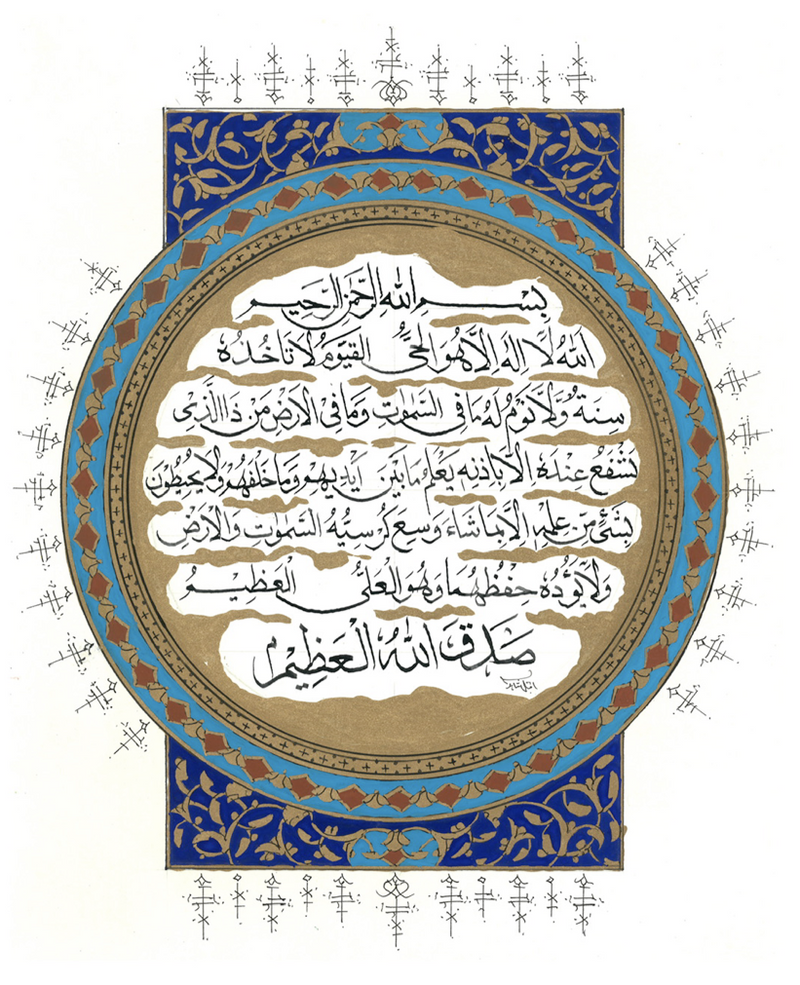 بِسْمِ اللهِ الرَّحْمٰنِ الرَّحِيمِ
اَللهُ لَا اِلٰهَ اِلَّا هُوَ الحَيُّ القَيُّومُ لَا تَاخُذُهُ
سِنَةٌ وَّلَا نَوْمٌ لَهُ مَا فِى السَّمٰوٰتِ وَمَا فِى الاَرْضِ مَن ذَا الَّذِى
يَشْفَعُ عِنْدَهُ اِلَّا بِاِذْنِهِ يَعْلَمُ مَا بَيْنَ اَيْدِيهِمْ وَمَا خَلْفَهُمْ وَلَا يُحِيطُونَ
بِشَىْءٍ مِّن عِلْمِهِ اِلَّا بِمَا شَاءَ وَسِعَ كُرْسِيُّهُ السَّمٰوٰتِ وَالاَرْضَ
وَلَا يَؤُدُهُ حِفْظُهُمَا وَهُوَ العَلِىُّ العَظِيمُ
صَدَقَ اللهُ الْعَظِيْمُ